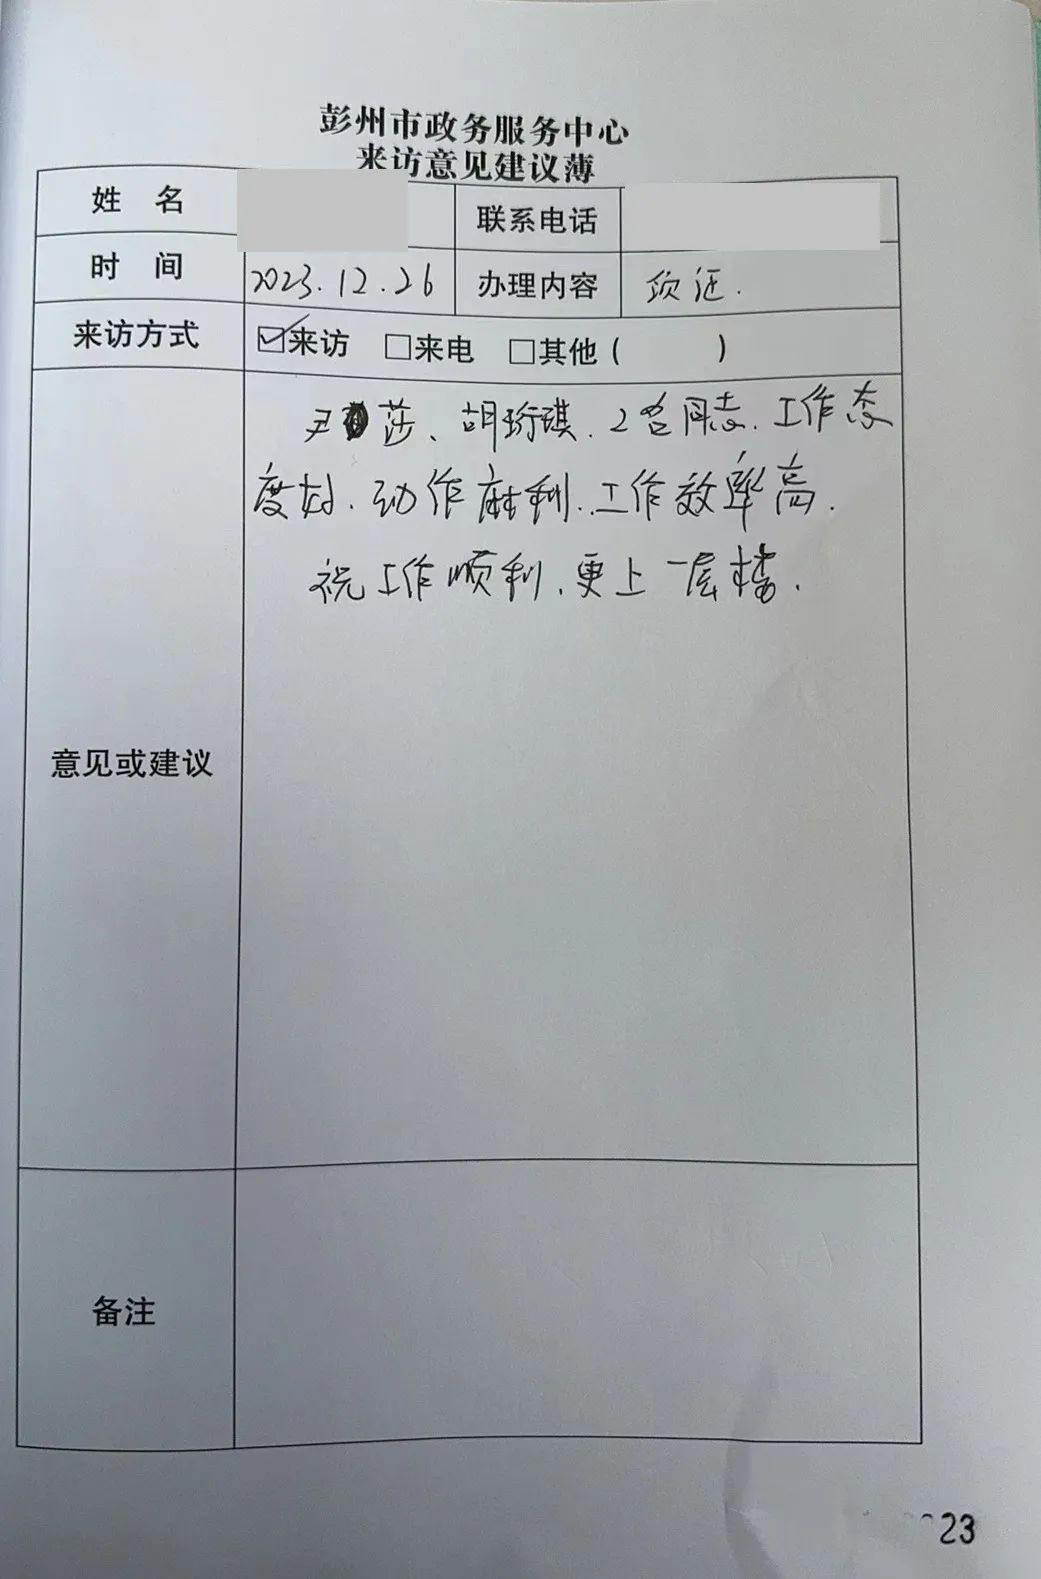 彭州市政务服务中心
来访意见建议薄
姓 名 联系电话
时 间 2023.12.26 办理内容 领证.
来访方式 ☑来访 □来电 □其他( )
尹莎、胡珩琪.2名同志.工作态
度好.动作麻利.工作效率高.
祝工作顺利.更上一层楼.
意见或建议
备注
23